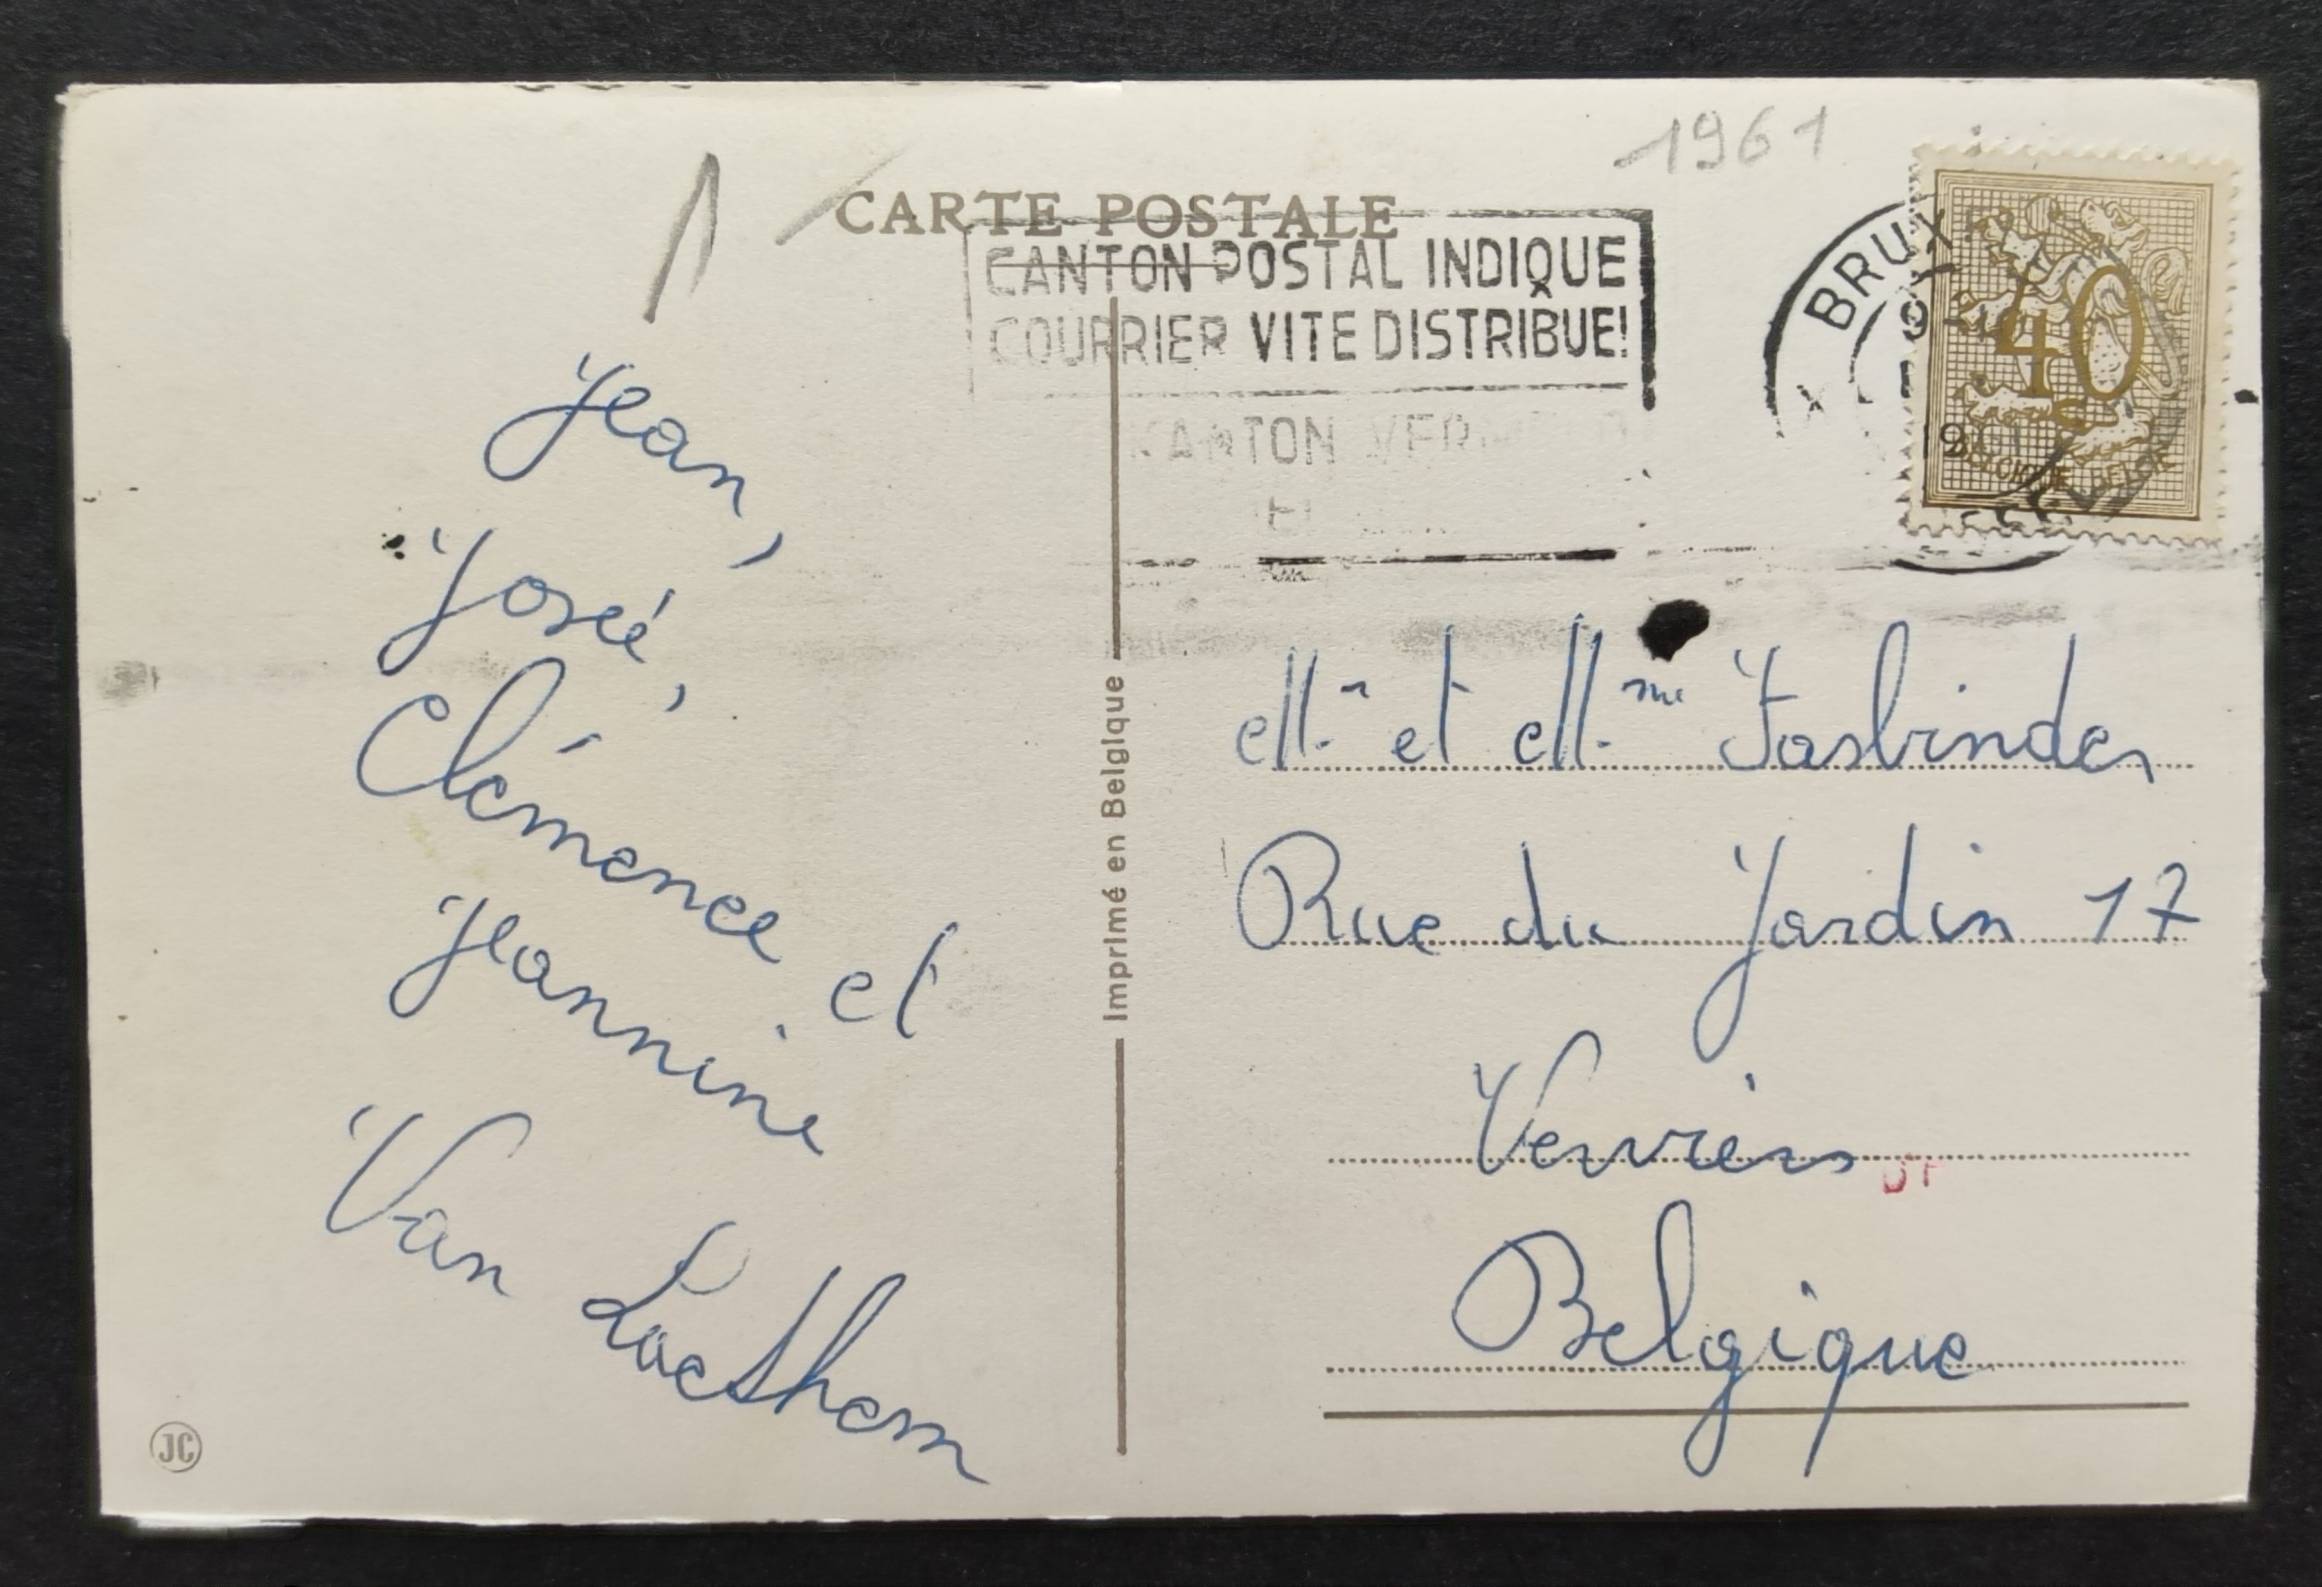 1961
CARTE POSTALE
CANTON POSTAL INDIQUE
COURRIER VITE DISTRIBUE!
KANTON
BRUX
40
BELGIQUE BELGIE
Jean,
José,
Clémence et
Jeannine
Van Laethem
JC
Imprimé en Belgique
Mr. et M.me Fasbinder
Rue du Jardin 17
Verviers
Belgique